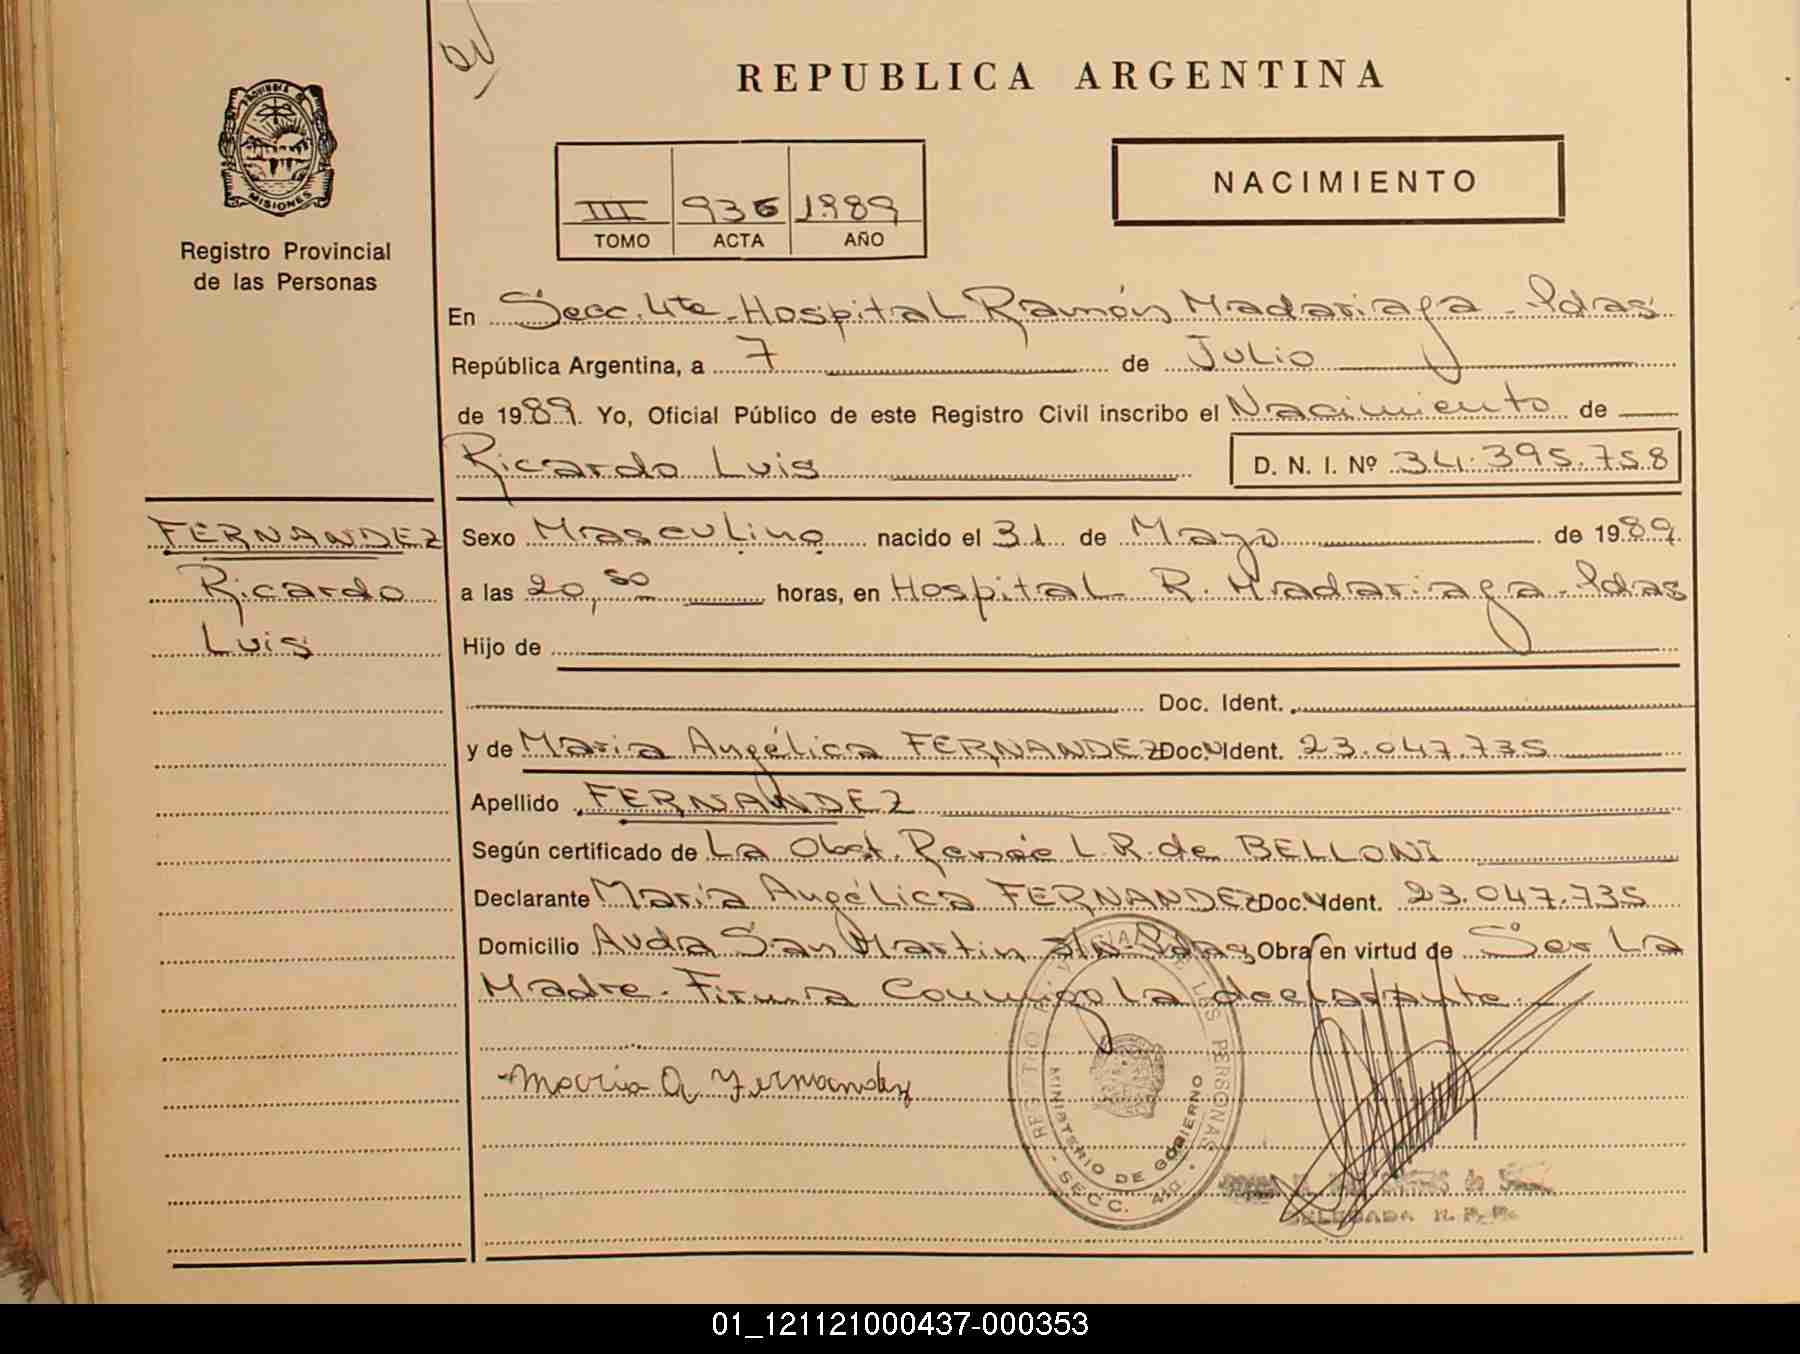 REPUBLICA ARGENTINA
PROVINCIA DE MISIONES
Registro Provincial
de las Personas
III 936 1989
TOMO ACTA AÑO
NACIMIENTO
En Secc. 4ta. Hospital Ramón Madariaga - Pdas
República Argentina, a 7 de Julio
de 1989. Yo, Oficial Público de este Registro Civil inscribo el Nacimiento de
Ricardo Luis D. N. I. Nº 34.395.758
FERNANDEZ
Ricardo
Luis
Sexo Masculino nacido el 31 de Mayo de 1989
a las 20,50 horas, en Hospital R. Madariaga - Pdas
Hijo de
Doc. Ident.
y de Maria Angélica FERNANDEZ Doc. Ident. 23.047.735
Apellido FERNANDEZ
Según certificado de La Obst. Renée L.R. de BELLONI
Declarante María Angélica FERNANDEZ Doc. Ident. 23.047.735
Domicilio Avda San Martin s/n - Pdas, Obra en virtud de Ser La
Madre. Firma Conmigo La declarante.
Maria A Fernandez
MINISTERIO DE GOBIERNO
DE LAS PERSONAS
SECC. 4ta.
DELEGADA R. P. P.
01_121121000437-000353